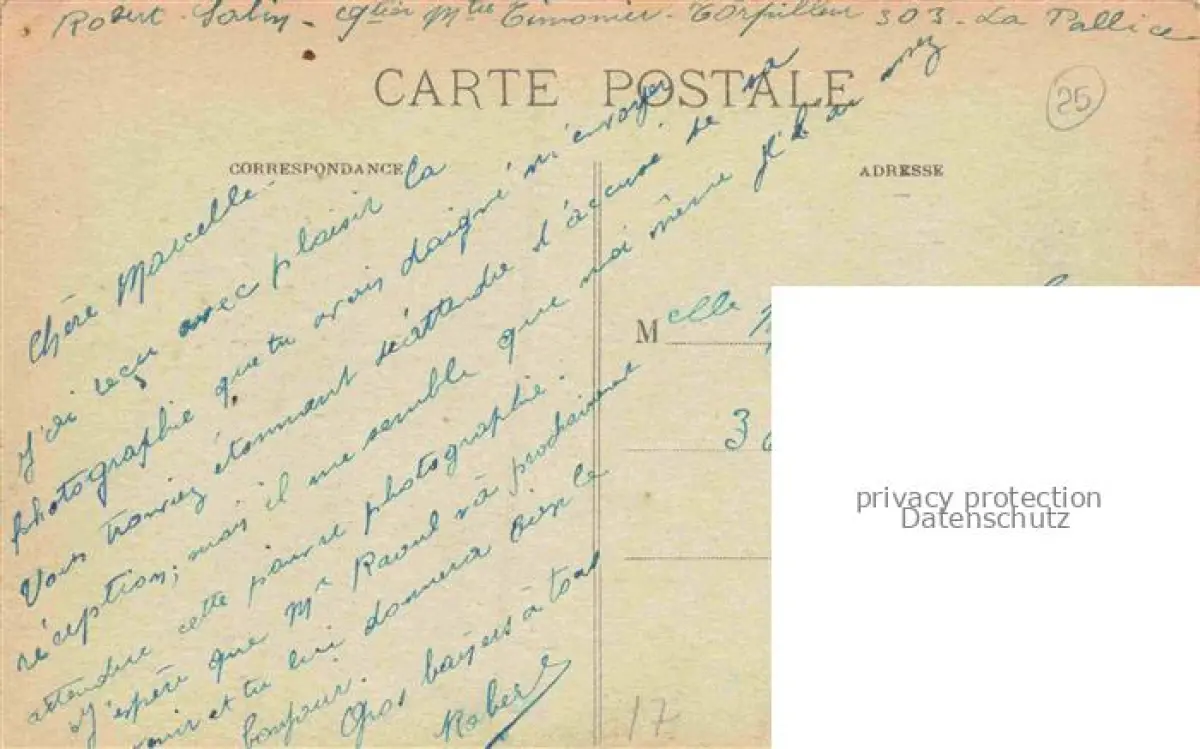 Robert Salin - Qtier Mtre Timonier - Torpilleur 303 - La Pallice
CARTE POSTALE
25
CORRESPONDANCE
ADRESSE
Chère Marcelle -
J'ai reçu avec plaisir la
photographie que tu avais daigné m'envoyer
Vous trouviez étonnant d'accusé de ma
réception; mais il me semble que moi même
attendre cette pauvre photographie.
J'espère que Mr Raoul va prochainement
venir et tu lui donnera bien le
bonjour.
Gros baisers à tous
Robert
Melle
3
17
privacy protection
Datenschutz